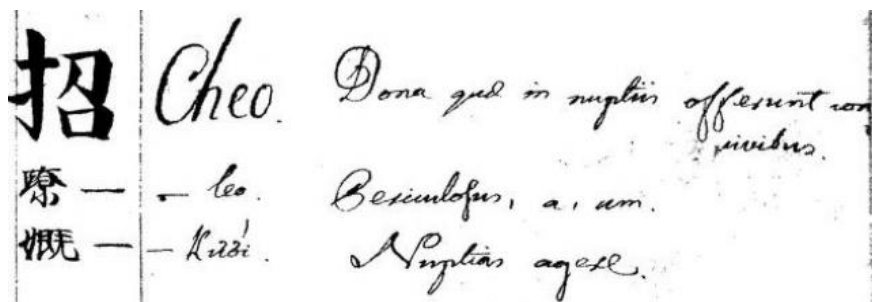 招 Cheo. Dona quæ in nuptiis offerunt con
vivibus.
嘹 — – leo. Periculosus, a, um.
𡠣 — – Cưới. Nuptias agere.